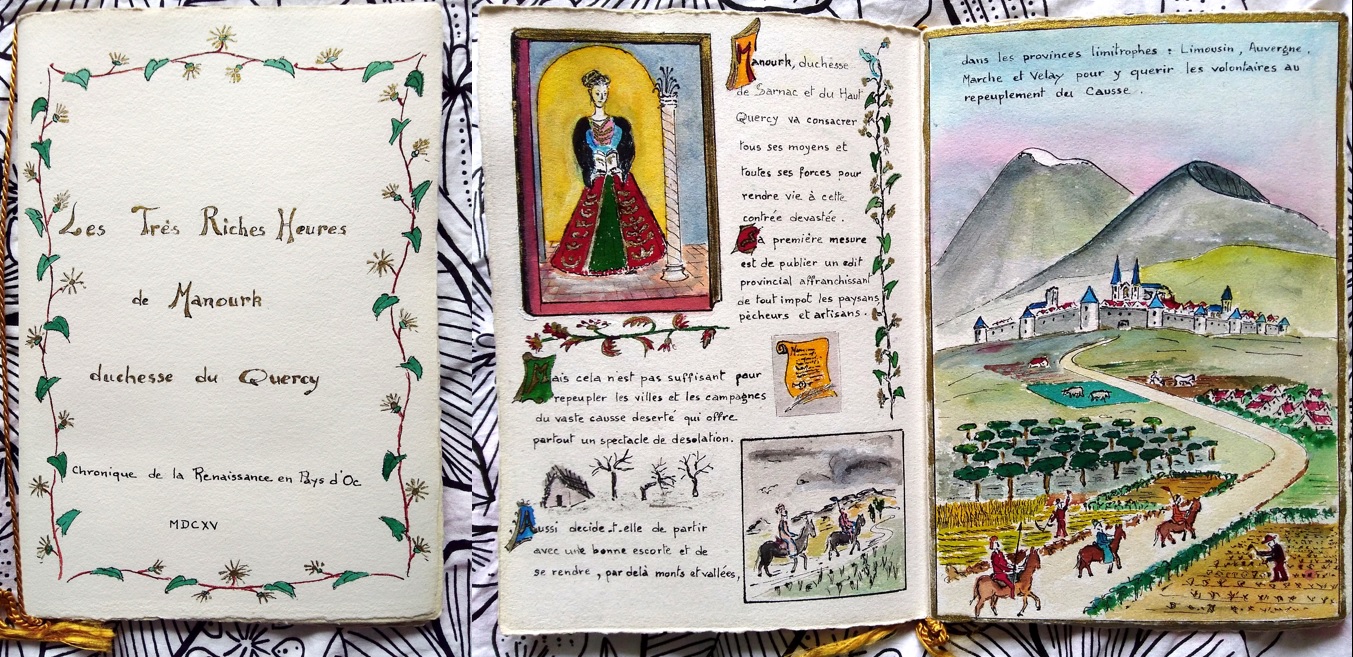 Les Très Riches Heures
de Manourk
duchesse du Quercy
Chronique de la Renaissance en Pays d'Oc
MDCXV
Manourk, duchesse
de Sarnac et du Haut
Quercy va consacrer
tous ses moyens et
toutes ses forces pour
rendre vie à cette
contrée devastée.
La première mesure
est de publier un edit
provincial affranchissant
de tout impot les paysans
pècheurs et artisans.
Mais cela n'est pas suffisant pour
repeupler les villes et les campagnes
du vaste causse deserté qui offre
partout un spectacle de desolation.
Aussi decide_t_elle de partir
avec une bonne escorte et de
se rendre, par delà monts et vallées,
dans les provinces limitrophes : Limousin, Auvergne,
Marche et Velay pour y querir les volontaires au
repeuplement du Causse.